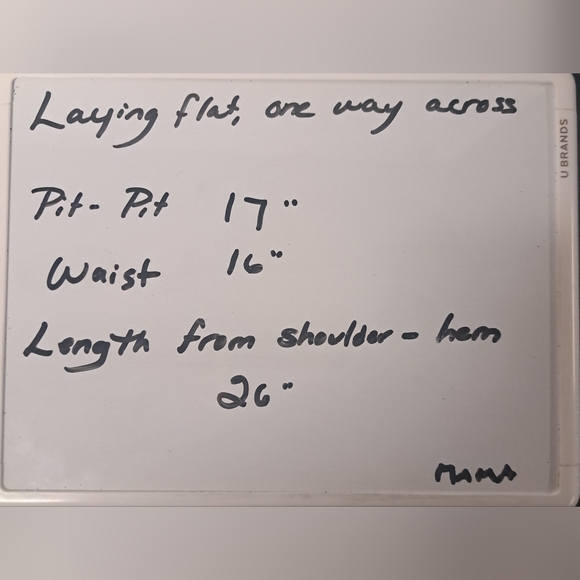 Laying flat, one way across
U BRANDS
Pit- Pit 17"
Waist 16"
Length from shoulder - hem
26"
MAMA